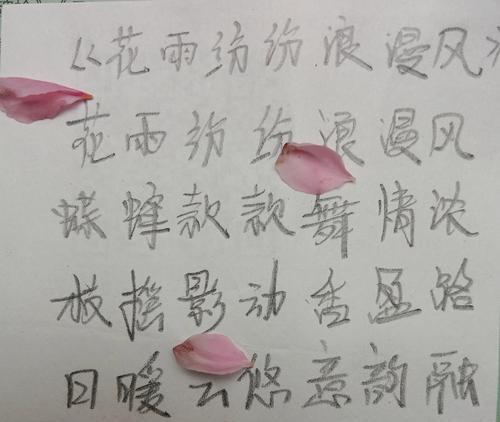 《花雨纷纷浪漫风》
花雨纷纷浪漫风
蝶蜂款款舞情浓
枝摇影动香盈路
日暖云悠意韵融